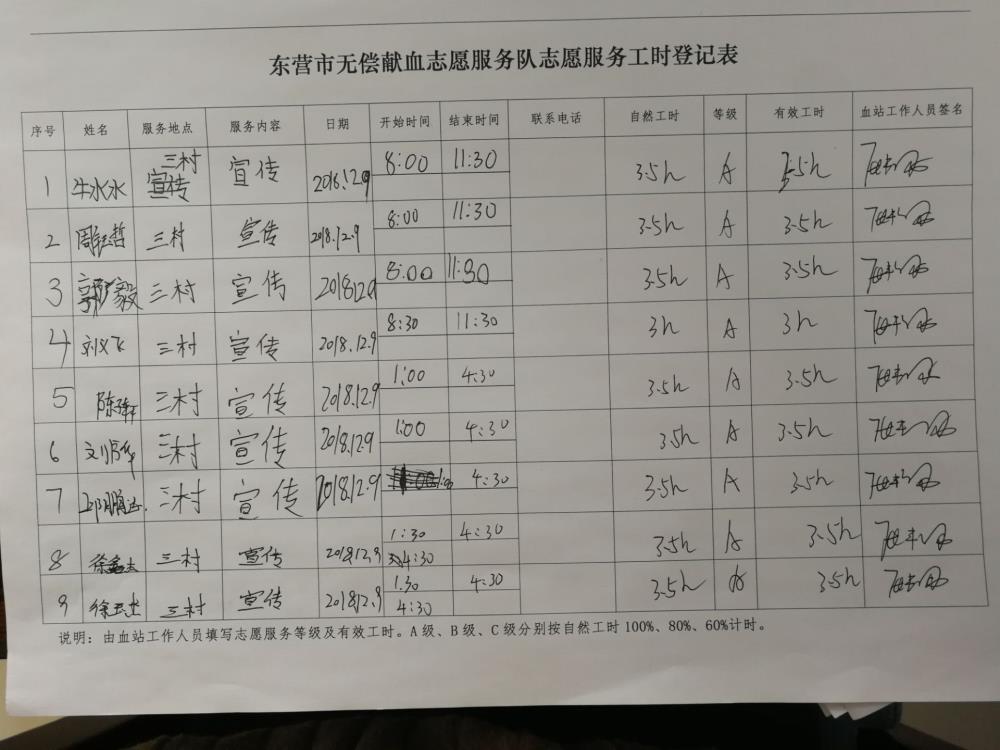 东营市无偿献血志愿服务队志愿服务工时登记表
序号 姓名 服务地点 服务内容 日期 开始时间 结束时间 联系电话 自然工时 等级 有效工时 血站工作人员签名
1 牛水水 三村宣传 宣传 2018.12.9 8:00 11:30 3.5h A 3.5h
2 三村 宣传 2018.12.9 8:00 11:30 3.5h A 3.5h
3 郭彦毅 三村 宣传 2018.12.9 8:00 11:30 3.5h A 3.5h
4 刘义飞 三村 宣传 2018.12.9 8:30 11:30 3h A 3h
5 三村 宣传 2018.12.9 1:00 4:30 3.5h A 3.5h
6 三村 宣传 2018.12.9 1:00 4:30 3.5h A 3.5h
7 三村 宣传 2018.12.9 4:30 3.5h A 3.5h
8 三村 宣传 2018.12.9 1:30 4:30 3.5h A 3.5h
4:30
9 三村 宣传 2018.12.9 1:30 4:30 3.5h A 3.5h
4:30
说明：由血站工作人员填写志愿服务等级及有效工时。A 级、B 级、C 级分别按自然工时 100%、80%、60%计时。